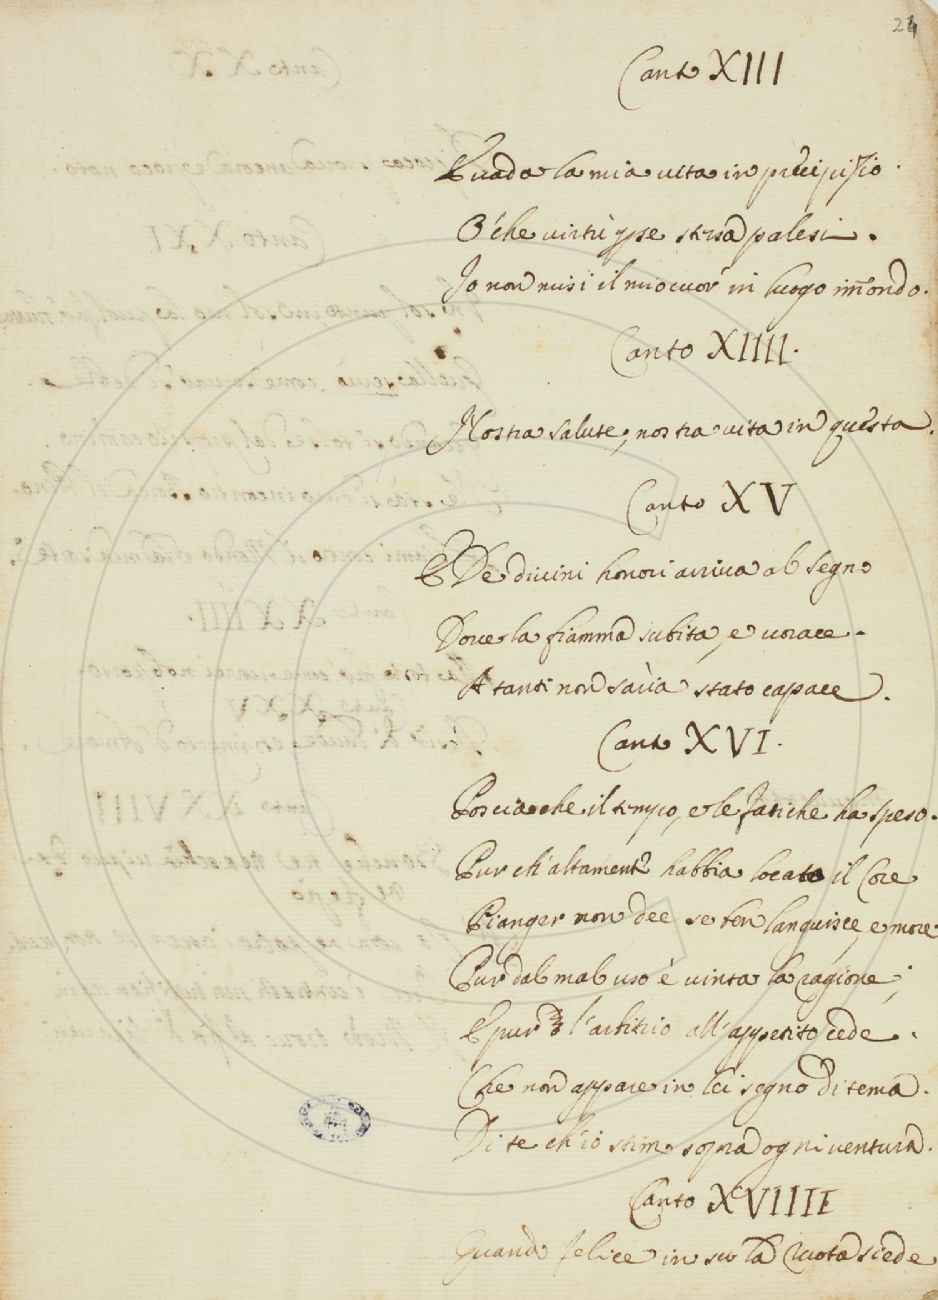 24
Canto XIII
E vada la mia vita in precipizio.
O che virtù spesse stria palesi.
Io non misi il mio cuor in luogo im̃ondo.
Canto XIIII.
Nostra salute, nostra vita in questa.
Canto XV
E De divini honori arriva al segno
Dove la fiamma subita, e vorace.
A tanti non saria stato capace.
Canto XVI.
Poscia che il tempo, e le fatiche ha speso.
Pur ch'altamente habbia locato il Core
Pianger non dee se ben languisce, e more
Pur dal mal uso è vinta la ragione;
E pur l'arbitrio all'appetito cede.
Che non appare in lei segno di tema.
Di te ch'io stimo sopra ogni ventura.
Canto XVIIII
Quand felice in su la Ruota siede